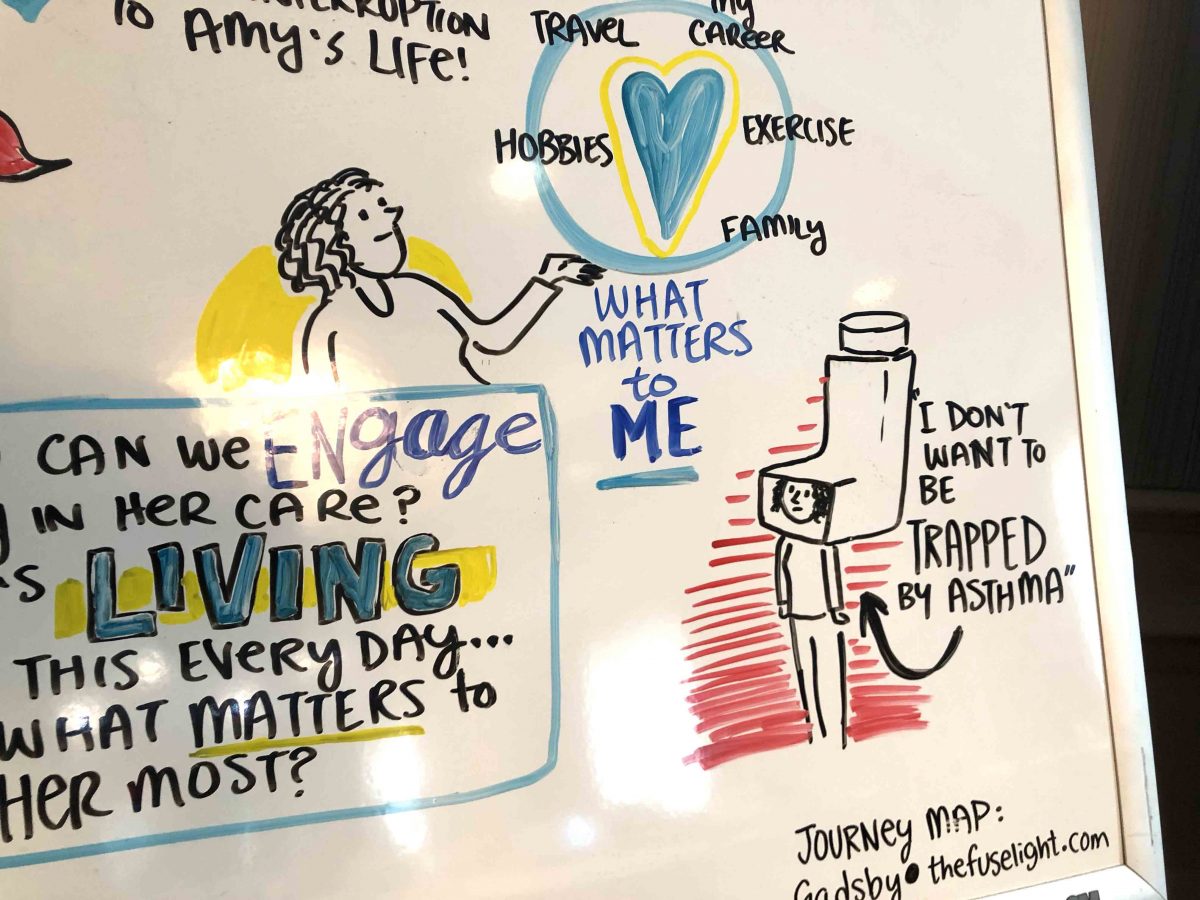 TO INTERRUPTION
AMY'S LIFE!
TRAVEL
MY
CAREER
HOBBIES
EXERCISE
FAMILY
WHAT
MATTERS
to
ME
CAN WE ENgage
IN HER CARE?
LIVING
THIS EVERY DAY...
WHAT MATTERS to
HER MOST?
"I DON'T
WANT TO
BE
TRAPPED
BY ASTHMA"
JOURNEY MAP:
Gadsby • thefuselight.com